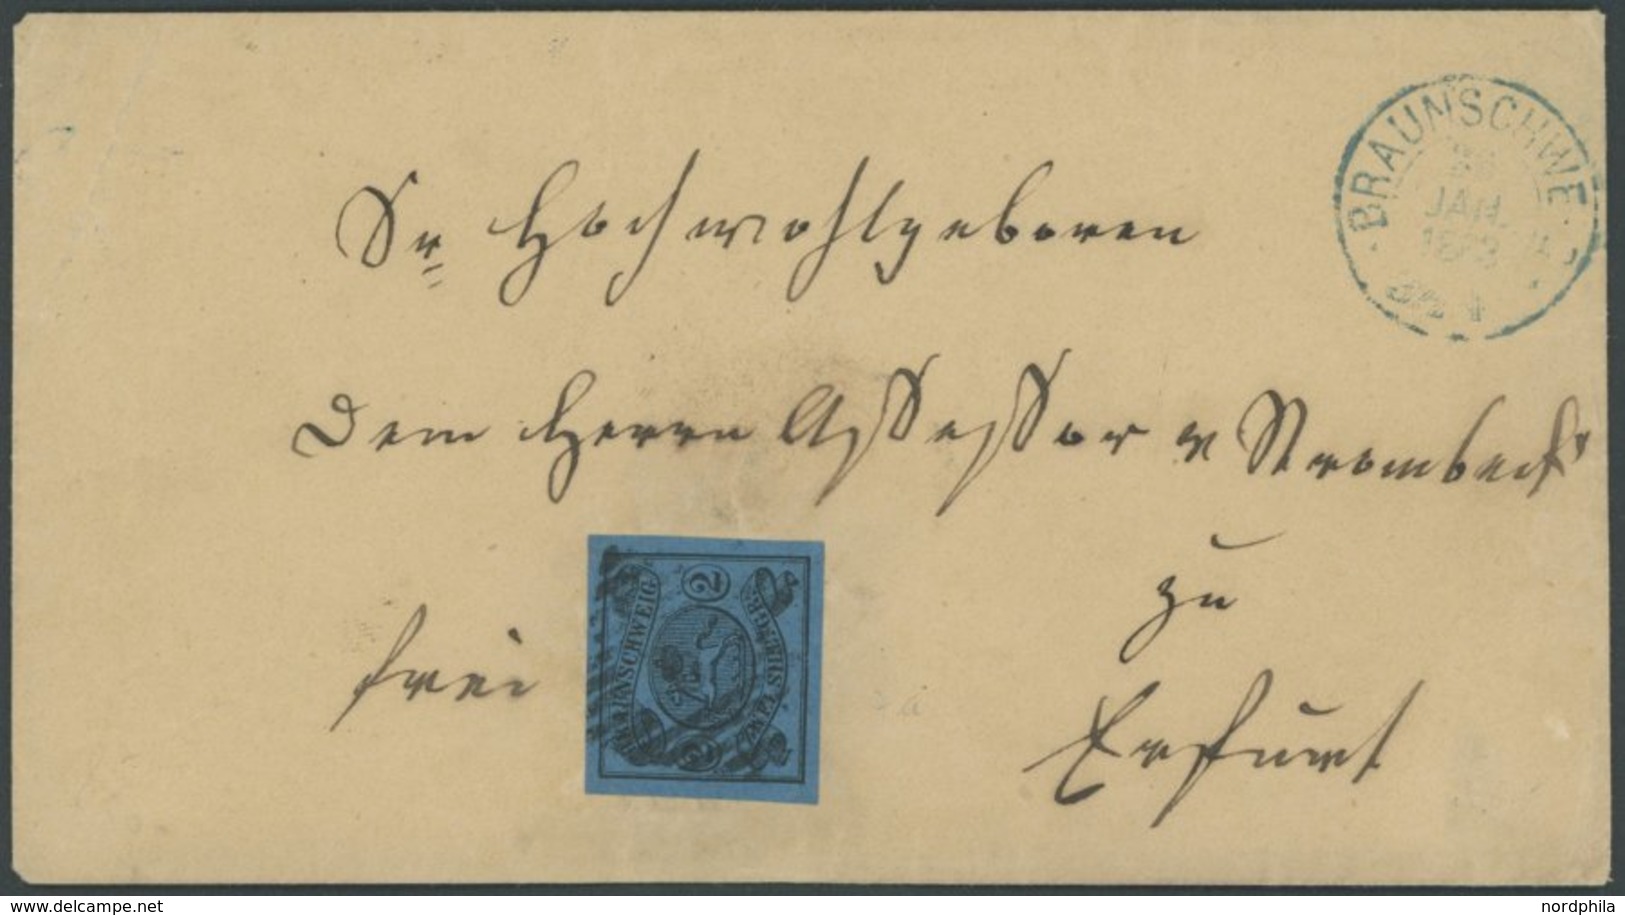 BRAUNSCHWE
JAN.
Sr Hochwohlgeboren
Dem Herrn Assessor v Strombeck
zu
Erfurt
frei
BRAUNSCHWEIG
2
ZWEI SILBERGR.
2
www.delcampe.net
nordphila